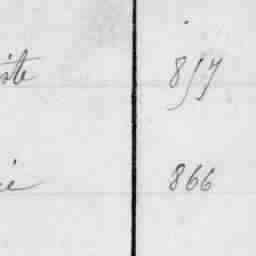 ite 857
ie 866